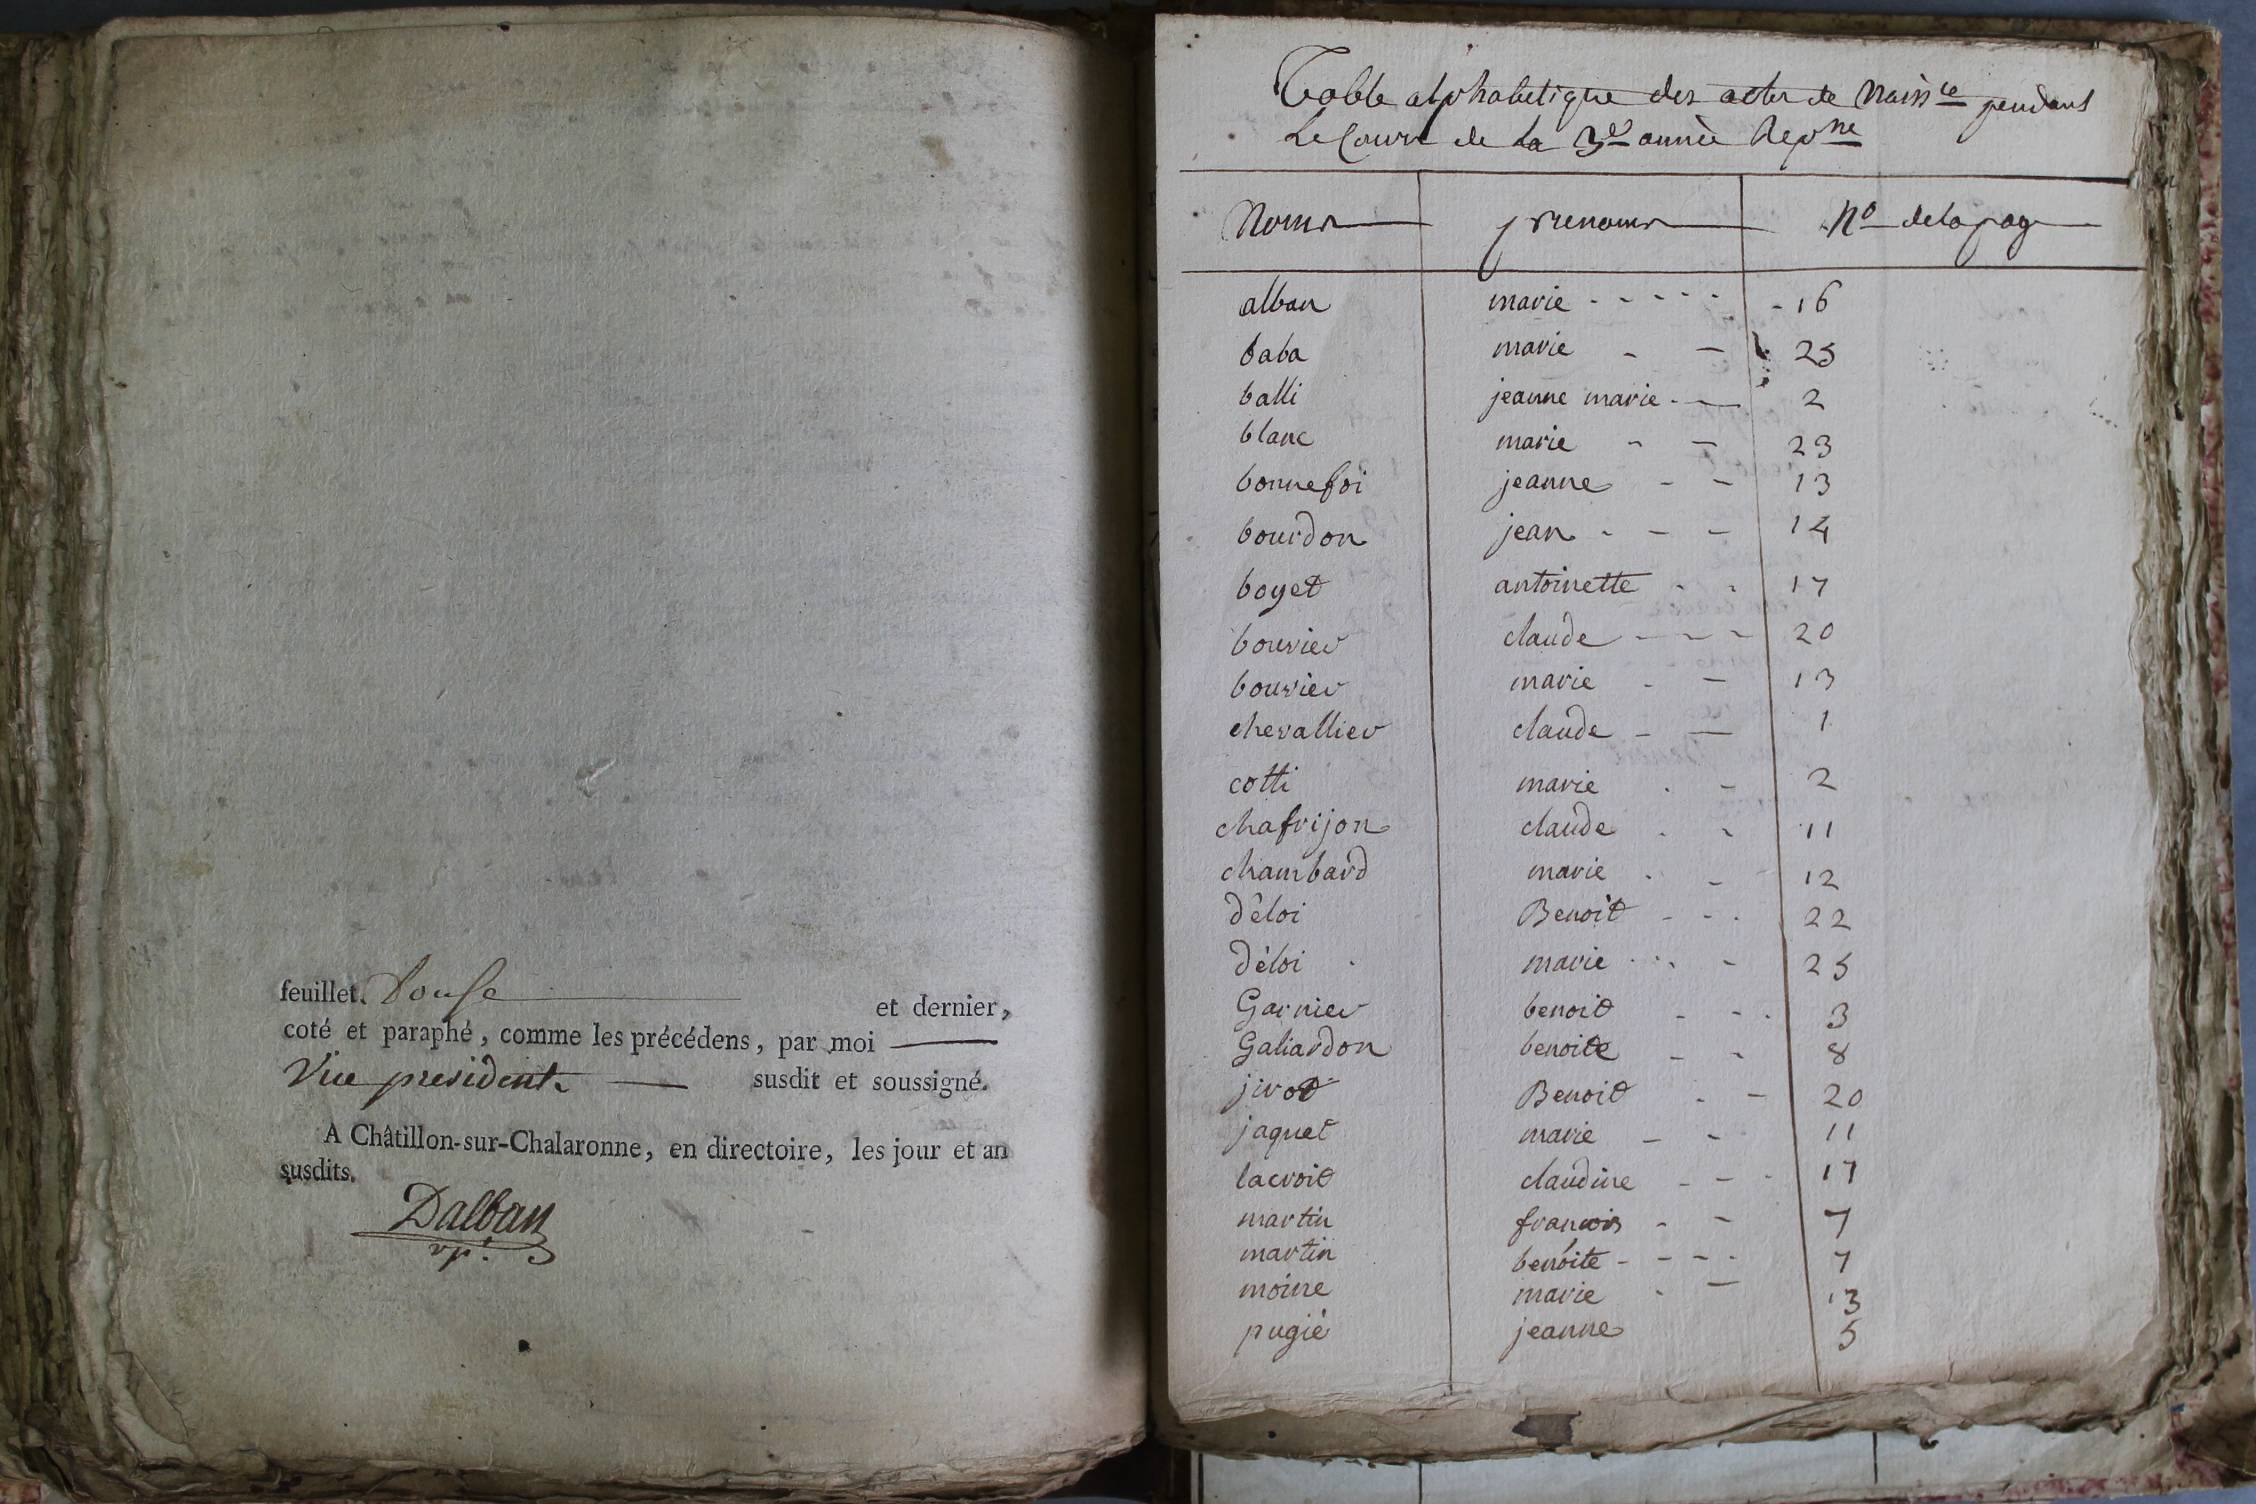 feuillet. Douse et dernier,
coté et paraphé, comme les précédens, par moi
Vice president. susdit et soussigné.
A Châtillon-sur-Chalaronne, en directoire, les jour et an
susdits.
Dalban
vp.
Table alphabetique des actes de Naissce pendant
Le Cours de la 3e année Repne
Noms prenoms No de la page
alban marie 16
baba marie 25
balli jeanne marie 2
blanc marie 23
bonnefoi jeanne 13
bourdon jean 14
boyet antoinette 17
bouvier claude 20
bouvier marie 13
chevallier claude 1
cotti marie 2
chafrijon claude 11
chambard marie 12
déloi Benoit 22
déloi marie 25
Garnier benoit 3
Galiardon benoite 8
jivot Benoit 20
jaquet marie 11
lacroit claudine 17
martin francois 7
martin benoite 7
moine marie 13
pugié jeanne 5